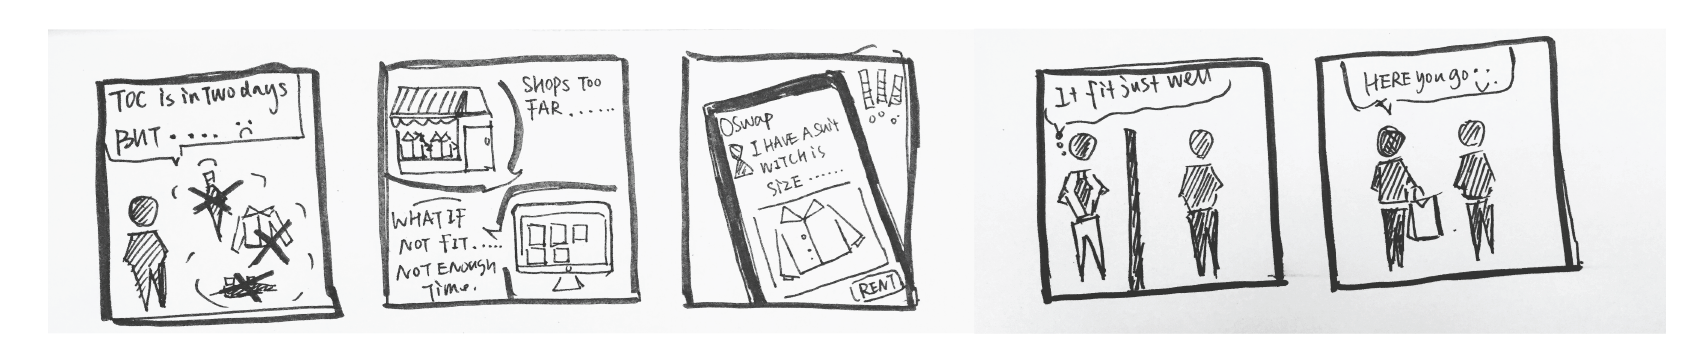 TOC is in Two days
BUT .... :(
SHOPS Too
FAR ......
WHAT IF
NOT FIT.....
NOT ENough
Time.
OSwap
I HAVE A suit
WITCH is
SIZE ......
RENT
It fit just well
HERE you go :)